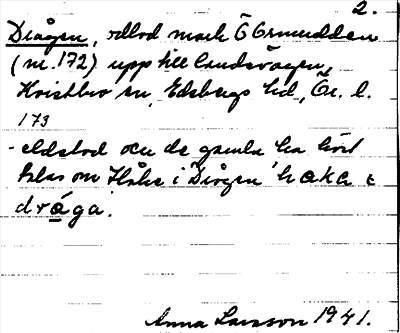 2.
Drågen, odlad mark Ö Grundden
(nr. 172) upp till landsvägen,
Kvistbro sn, Edsbergs hd, Ör. l.
173
- eldstod och de gamla ha hört
talas om Håke i Drågen haka i
dråga.
Anna Larsson 1941.